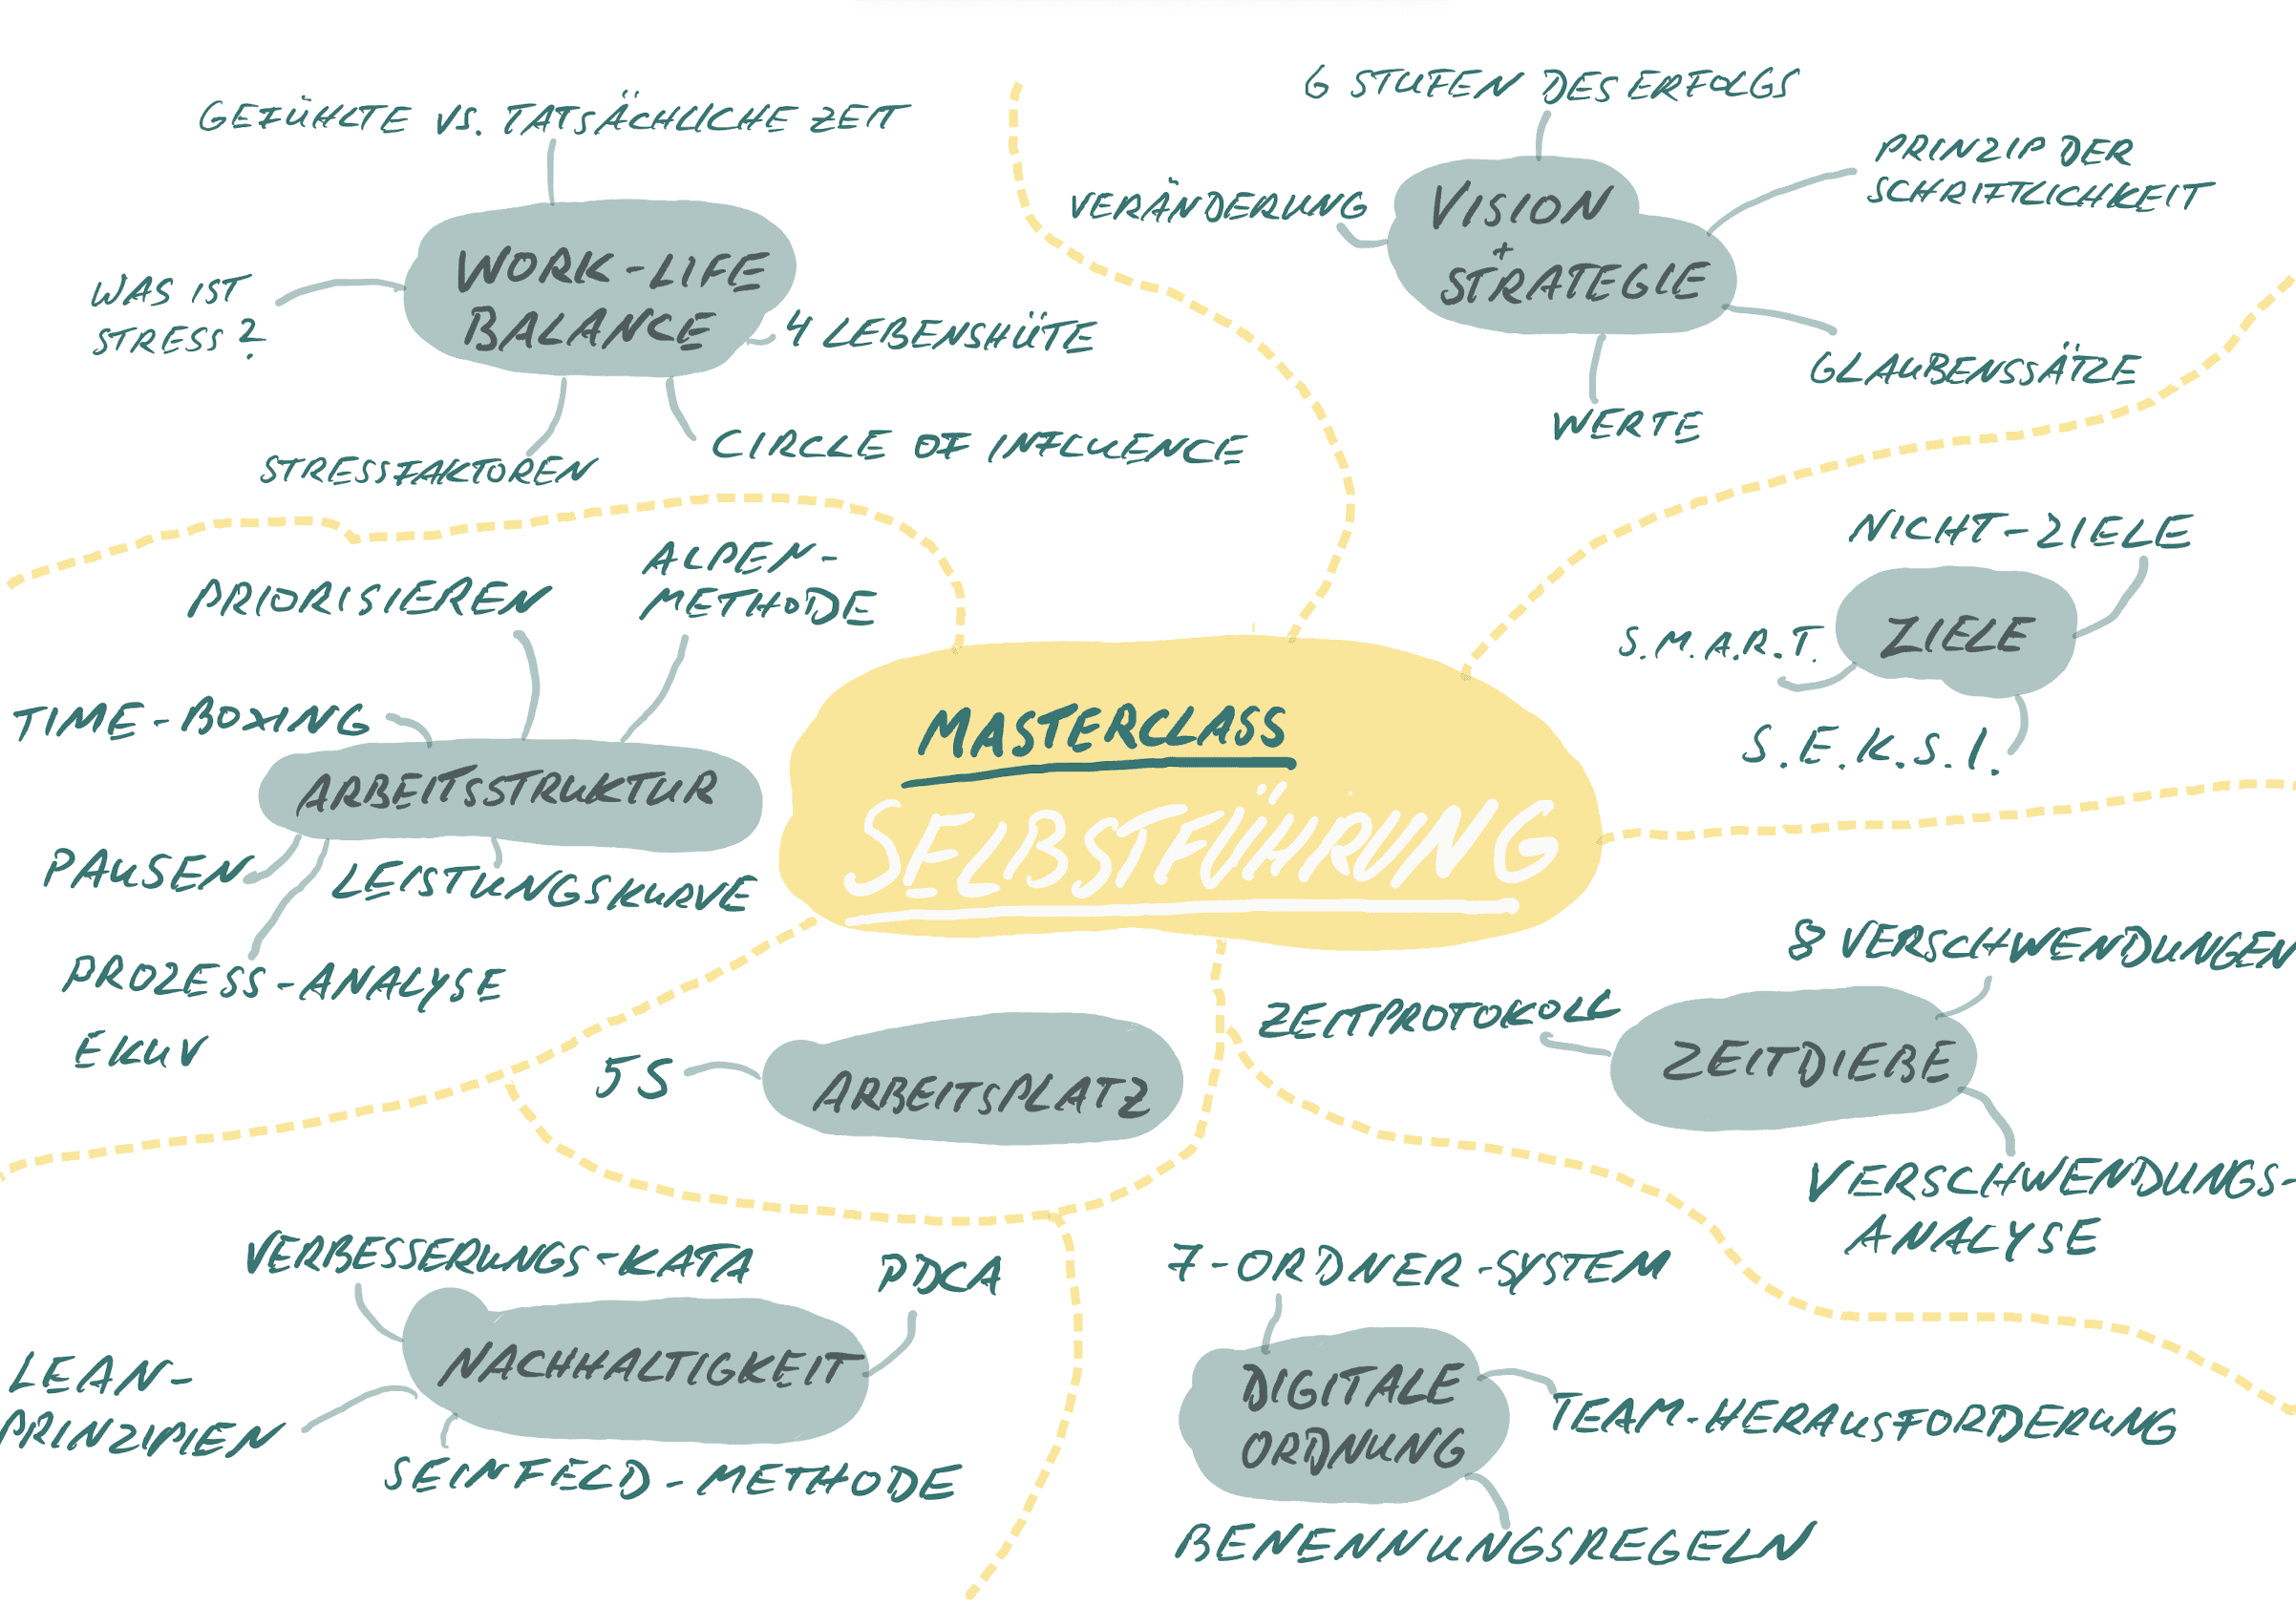 GEFÜHLTE VS. TATSÄCHLICHE ZEIT
WORK-LIFE
BALANCE
WAS IST
STRESS?
4 LEBENSHÜTE
CIRCLE OF INFLUENCE
STRESSFAKTOREN
6 STUFEN DES ERFOLGS
VERÄNDERUNG
VISION
+
STRATEGIE
PRINZIP DER
SCHRIFTLICHKEIT
GLAUBENSSÄTZE
WERTE
NICHT-ZIELE
ZIELE
S.M.A.R.T.
S.E.K.S.I.
PRIORISIEREN
ALPEN-
METHODE
TIME-BOXING
ARBEITSSTRUKTUR
PAUSEN
LEISTUNGSKURVE
PROZESS-ANALYSE
EKUV
MASTERCLASS
SELBSTFÜHRUNG
5S
ARBEITSPLATZ
8 VERSCHWENDUNGEN
ZEITPROTOKOLL
ZEITDIEBE
VERSCHWENDUNGS-
ANALYSE
VERBESSERUNGS-KATA
PDCA
NACHHALTIGKEIT
LEAN-
PRINZIPIEN
SEINFELD-METHODE
7-ORDNER-SYSTEM
DIGITALE
ORDNUNG
TEAM-HERAUSFORDERUNG
BENENNUNGSREGELN